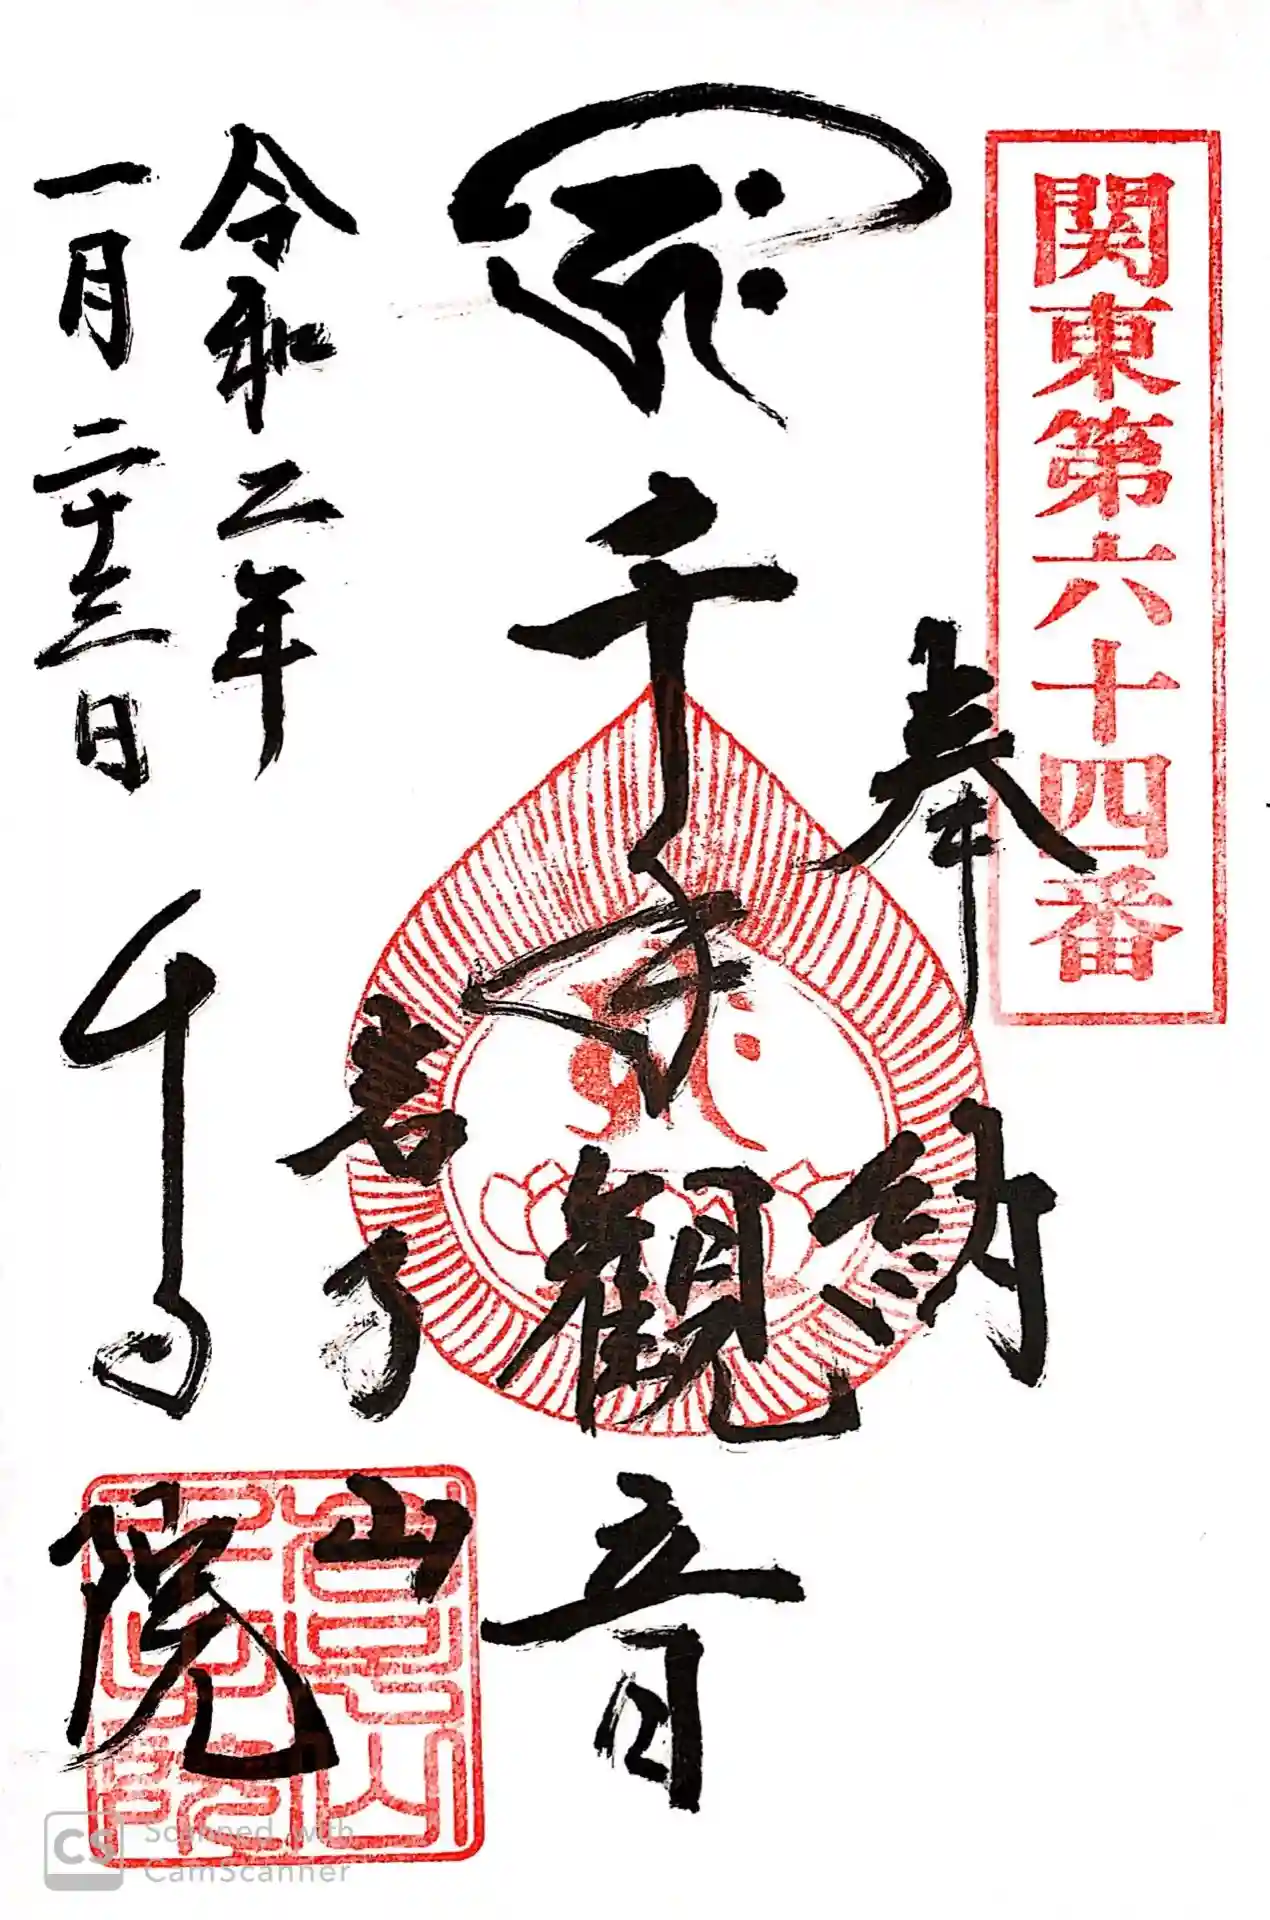 関東第六十四番
奉納
千手觀音
山
院
令和二年
一月二十三日
Scanned with
CamScanner
CS